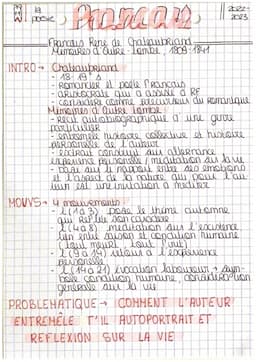 la poésie
Français
2022-2023
François René de Chateaubriand
Mémoires d'outre-tombe, 1809-1841
INTRO → Chateaubriand
- 18-19e s
- romancier et poète Français
- aristocrate qui a assisté a RF
- considéré comme précurseur du romantique
Mémoires d'outre tombe :
- récit autobiographique a une genre particulier
- entremêle histoire collective et histoire personelle de l'auteur
- écriture conduit sur alternance expérience personelle / méditation sur la vie
- basé sur le rapport entre ses emotions et l'aspect de la nature qui pour l'auteur est une invitation a méditer
MOUVS → 4 mouvements
- l (1 a 3) pose le thème automne qui reflète son caractère
- l (4 a 8) méditation sur l'existence lien entre saison et condition humaine (tout meurt, tout finit)
- l (9 a 14) retour a l'expérience personelle
- l (14 a 21) évocation laboureur → symbole condition humaine, considération générale sur la vie
PROBLEMATIQUE → COMMENT L'AUTEUR
ENTREMÊLE T'IL AUTOPORTRAIT ET
REFLEXION SUR LA VIE